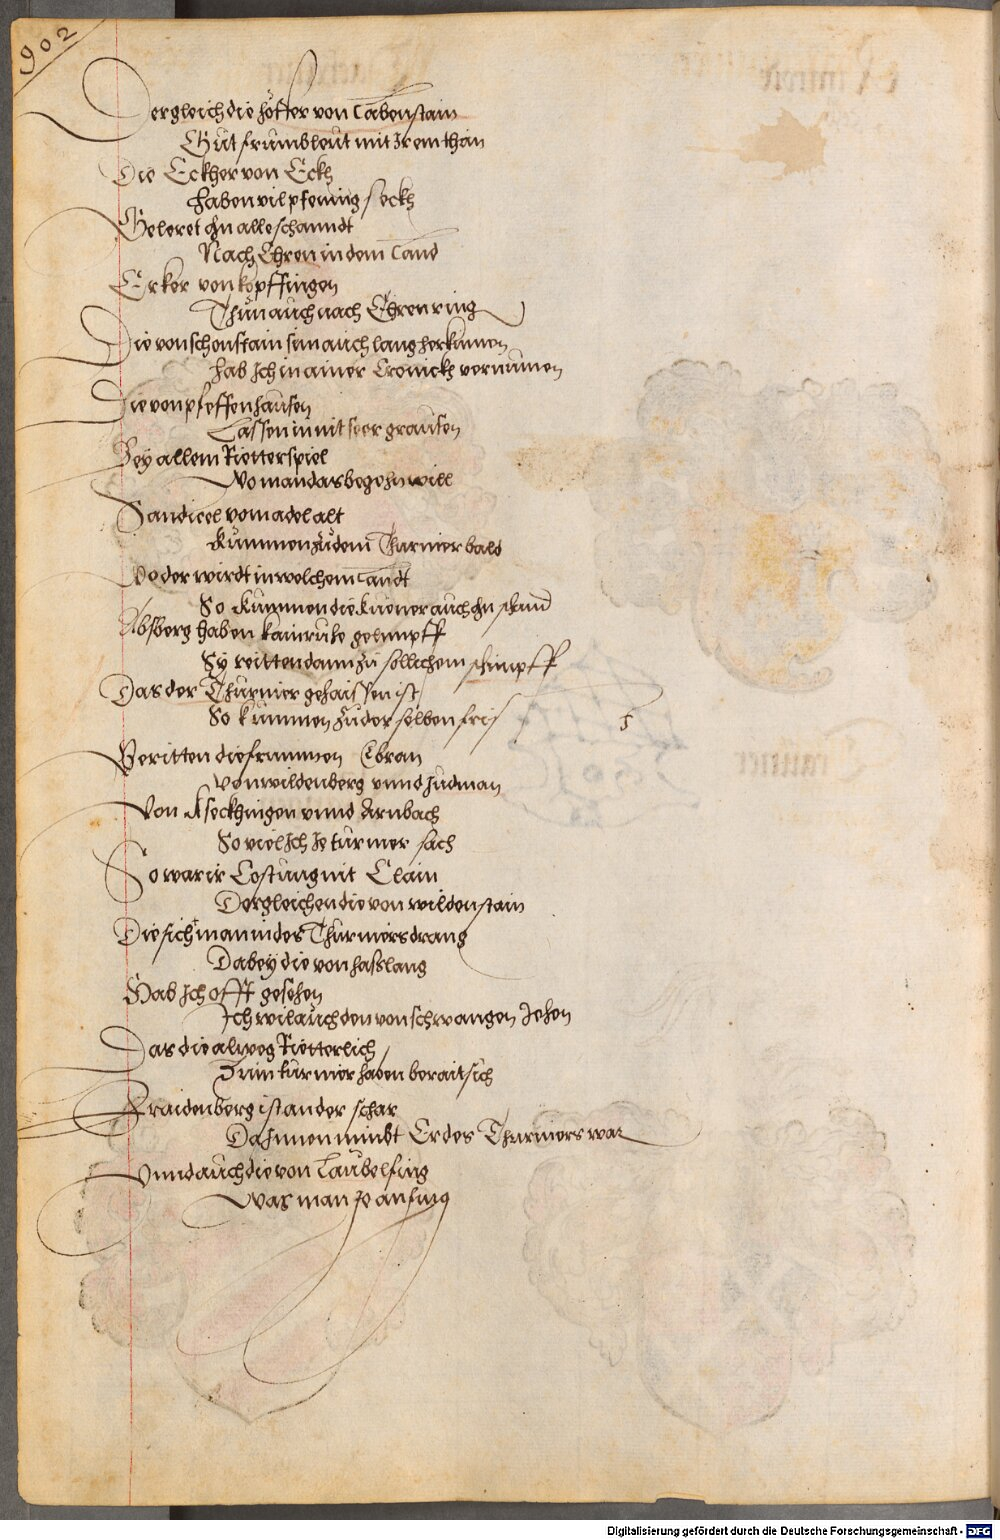 902
Dergleich die Höfer von Labenstain
Gut frumb leut mit Irem than
Die Eckher von Eckh
Haben vil pfening seckh
Geleret on alle schanndt
Nach Ehren in dem Land
Erker von köpffingen
Thun auch nach Ehren ring
Die von schonstain sein auch lang herkumen
Hab Ich in ainer Cronickh vernumen
Die von pfeffenhausen
Lassen in nit seer grausen
Bey allem Rietterspiel
Wo man das begehn will
Sandicel vom adel alt
Kummen zu dem Thurnier bald
Wo der wirdt in welchem Landt
So kummen die kuener auch on schand
Absberg haben kain ruhe gelimpff
Sy reitten dann zu sollichem schimpff
Das der Thurnier gehaissen ist
So kummen zu der selben fris
t
Beritten die frummen Ebran
Von wildenberg vnnd Judman
Von Aseckhingen vnnd Arnbach
So viel Ich Ie turnier sach
So war ir Costung nit Clain
Dergleichen die von wildenstain
Die sicht man in des Thurniers drang
Dabey die von Haßlang
Hab Ich offt gesehen
Ich wil auch den von schwangen Jehen
Das die alweg Rietterlich
Zum turnier haben berait sich
Fraidenberg ist an der schar
Da Innen nimbt Er des Thurniers war
Vnnd auch die von Laubelfing
Was man Je anfing
Digitalisierung gefördert durch die Deutsche Forschungsgemeinschaft - DFG